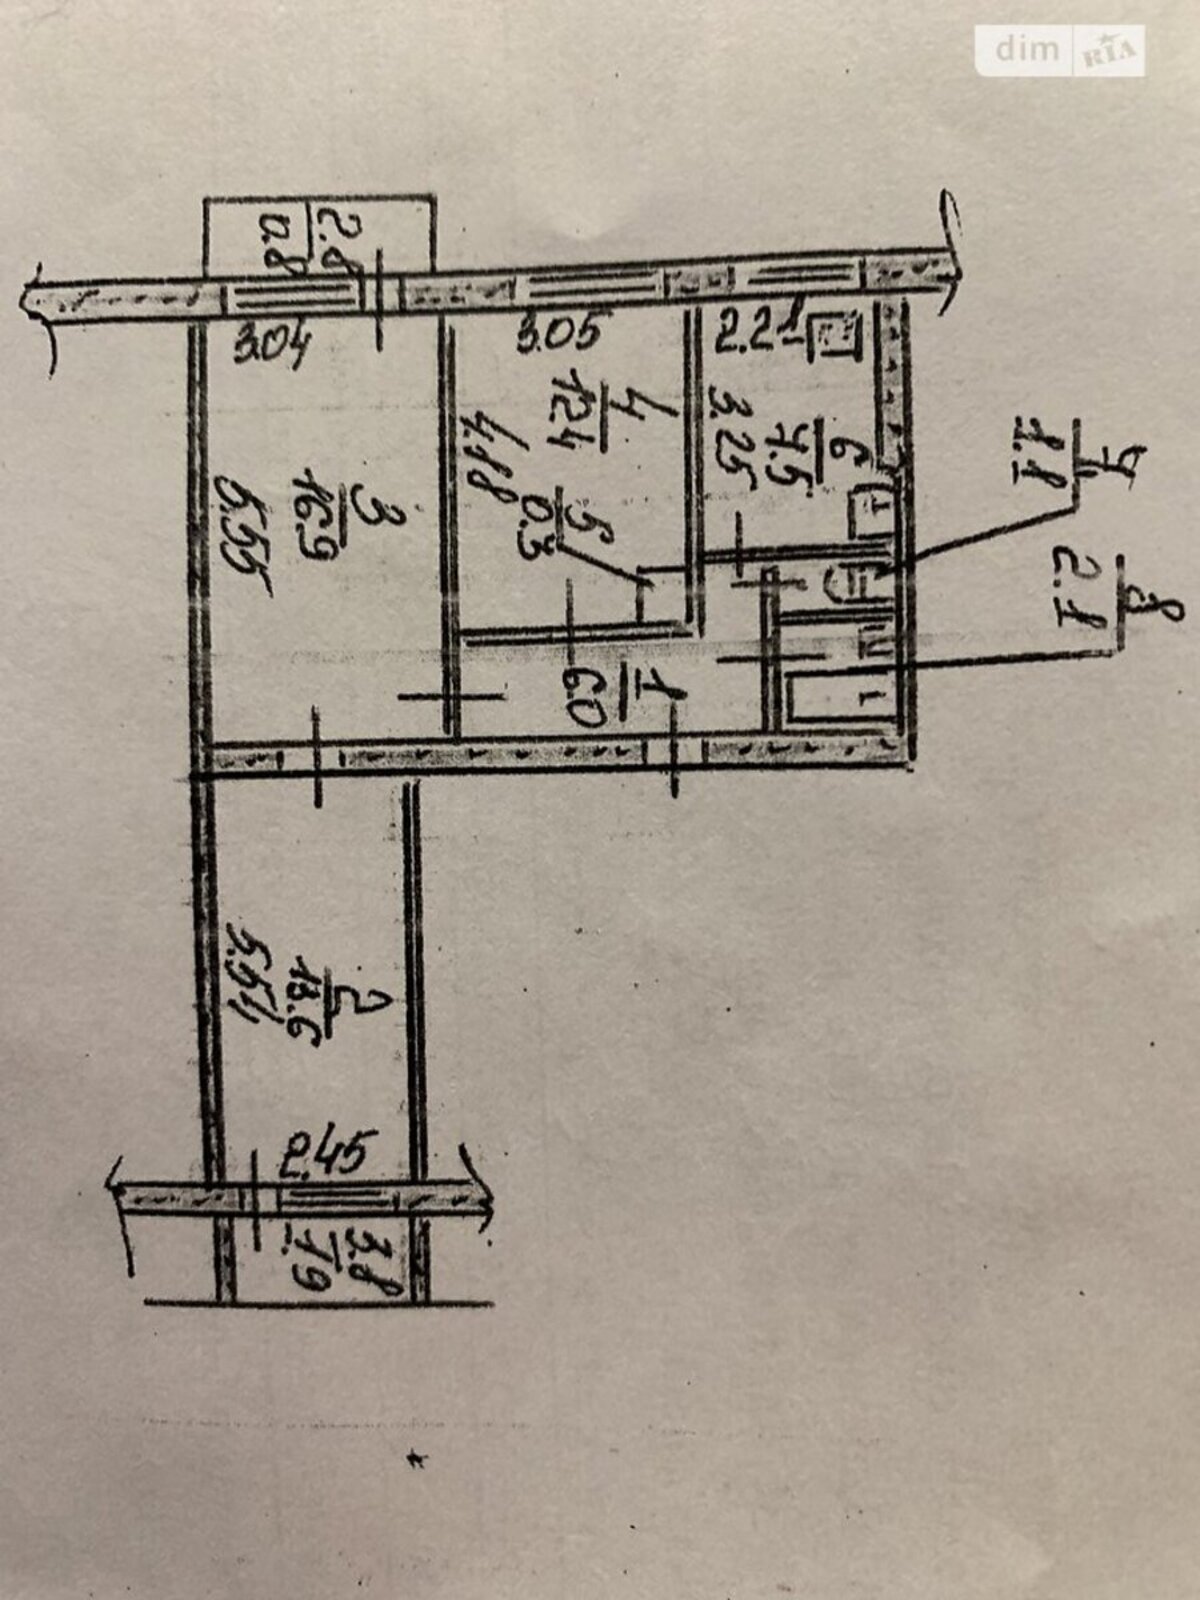 dim RIA
2.8
0.8
3.04
3.05
2.21
4
12.4
4.18
3.25
6
7.5
7
1.1
3
16.9
5.55
5
0.3
8
2.1
1
6.0
2
13.6
5.54
2.45
3.8
1.9